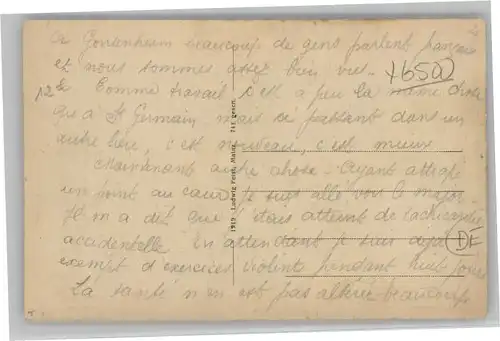 A Gonsenheim beaucoup de gens parlent français
et nous sommes assez bien vus.
+6500
12k
Comme travail c'est à peu la même chose
qu'à St Germain, mais se passant dans un
autre lieu, c'est nouveau, c'est mieux
Maintenant autre chose. Ayant attrapé
un point au cœur je suis allé voir le major.
Il m'a dit que j'étais atteint de tachicardie
accidentelle En attendant je suis déjà
exempt d'exercices violents pendant huit jours
La santé n'en est pas altérée beaucoup
DE
1919 Ludwig Feist, Mainz. Ges. gesch.